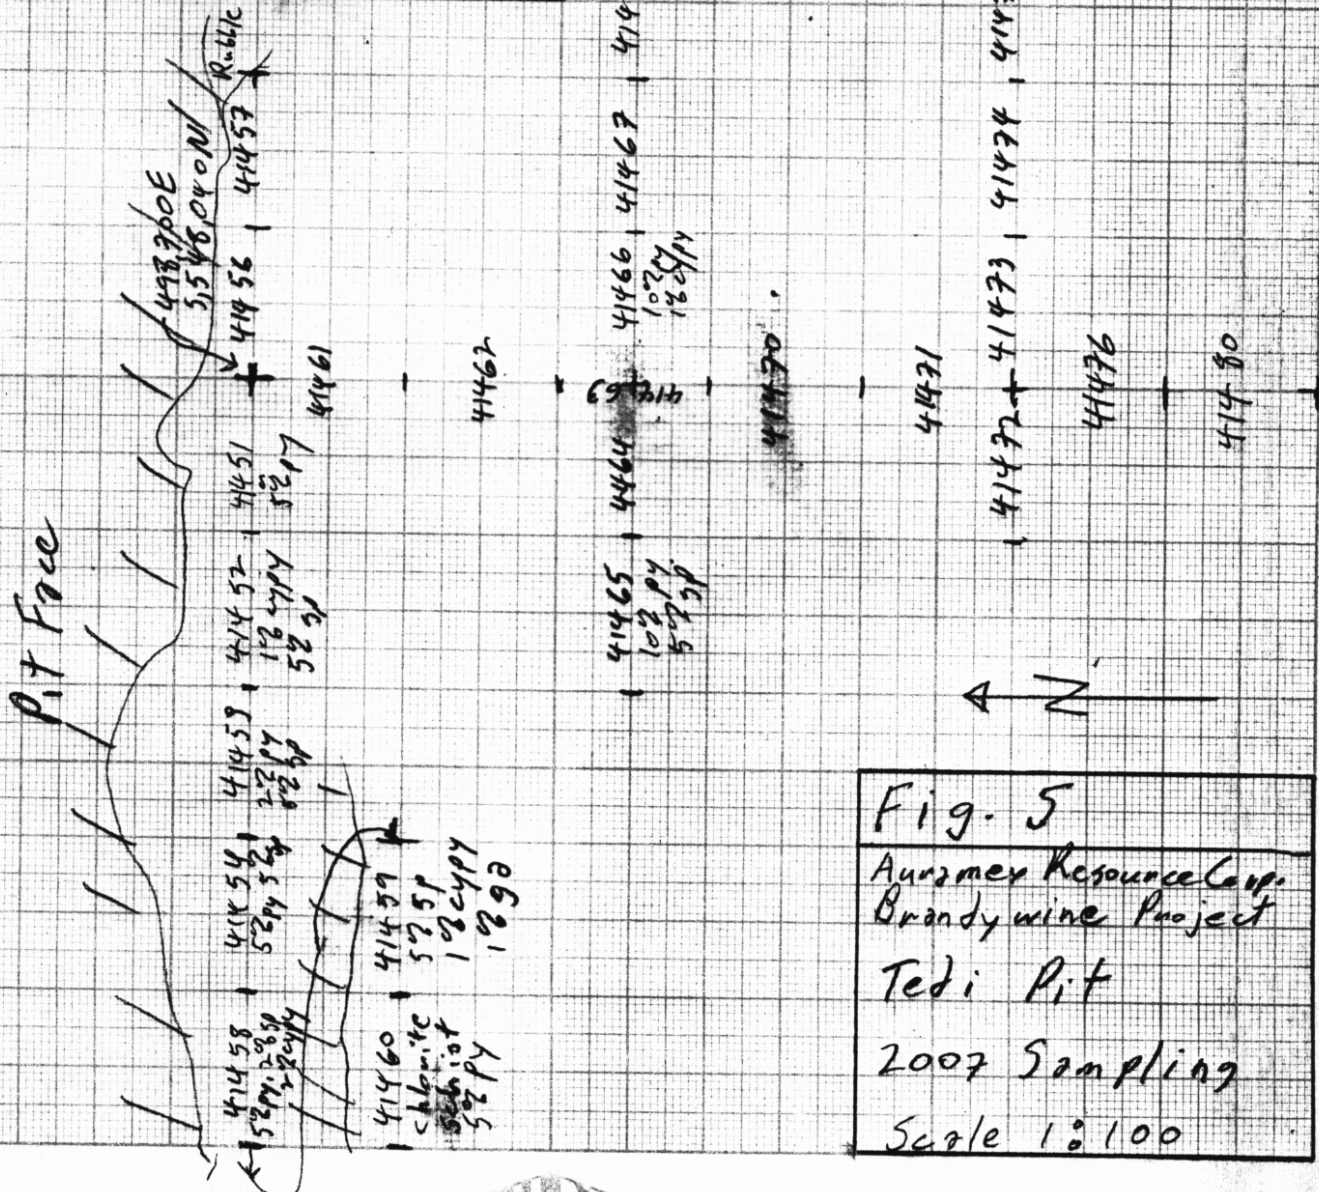 Pit Face
Rubble
498,700E
5,548,040N
41458
5% py, 2% sp
41454
5% py 5% sp
41459
2% py
8% sp
41452
1% cypy
5% sp
41451
5% py
41456
41457
41460
chlorite
schist
5% py
41459
5% sp
1% cypy
1% ga
41461
41462
41463
41465
10% py
5% sp
4464
41466
10% py
1% cypy
41467
414
41470
41471
41472
41473
41474
414
41476
41480
N
Fig. 5
Auramex Resource Corp.
Brandywine Project
Tedi Pit
2007 Sampling
Scale 1:100